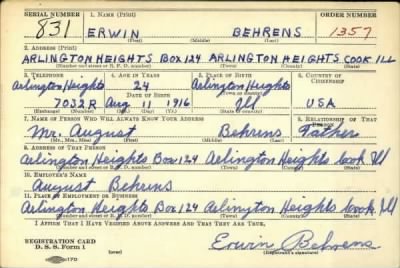 SERIAL NUMBER 1. NAME (Print) ORDER NUMBER
831 ERWIN BEHRENS 1357
(First) (Middle) (Last)
2. ADDRESS (Print)
ARLINGTON HEIGHTS BOX 124 ARLINGTON HEIGHTS COOK ILL
(Number and street or R. F. D. number) (Town) (County) (State)
3. TELEPHONE 4. AGE IN YEARS 5. PLACE OF BIRTH 6. COUNTRY OF CITIZENSHIP
Arlington Heights 24 Arlington Heights
DATE OF BIRTH (Town or county)
7032R Aug 11 1916 Ill USA
(Exchange) (Number) (Mo.) (Day) (Yr.) (State or country)
7. NAME OF PERSON WHO WILL ALWAYS KNOW YOUR ADDRESS 8. RELATIONSHIP OF THAT PERSON
Mr. August Behrens Father
(Mr., Mrs., Miss) (First) (Middle) (Last)
9. ADDRESS OF THAT PERSON
Arlington Heights Box 124 Arlington Heights Cook Ill
(Number and street or R. F. D. number) (Town) (County) (State)
10. EMPLOYER'S NAME
August Behrens
11. PLACE OF EMPLOYMENT OR BUSINESS
Arlington Heights Box 124 Arlington Heights Cook Ill
(Number and street or R. F. D. number) (Town) (County) (State)
I AFFIRM THAT I HAVE VERIFIED ABOVE ANSWERS AND THAT THEY ARE TRUE.
REGISTRATION CARD
D. S. S. Form 1
Erwin Behrens
(Registrant's signature)